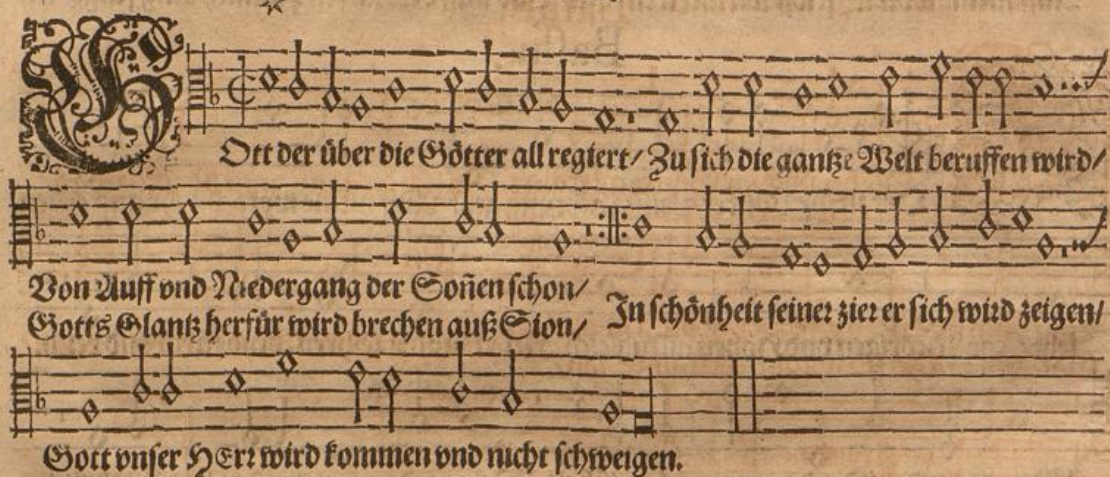 GOtt der über die Götter all regiert/ Zu sich die gantze Welt beruffen wird/
Von Auff vnd Niedergang der Soñen schon/
Gotts Glantz herfür wird brechen auß Sion/ In schönheit seiner zier er sich wird zeigen/
Gott vnser HErr wird kommen vnd nicht schweigen.